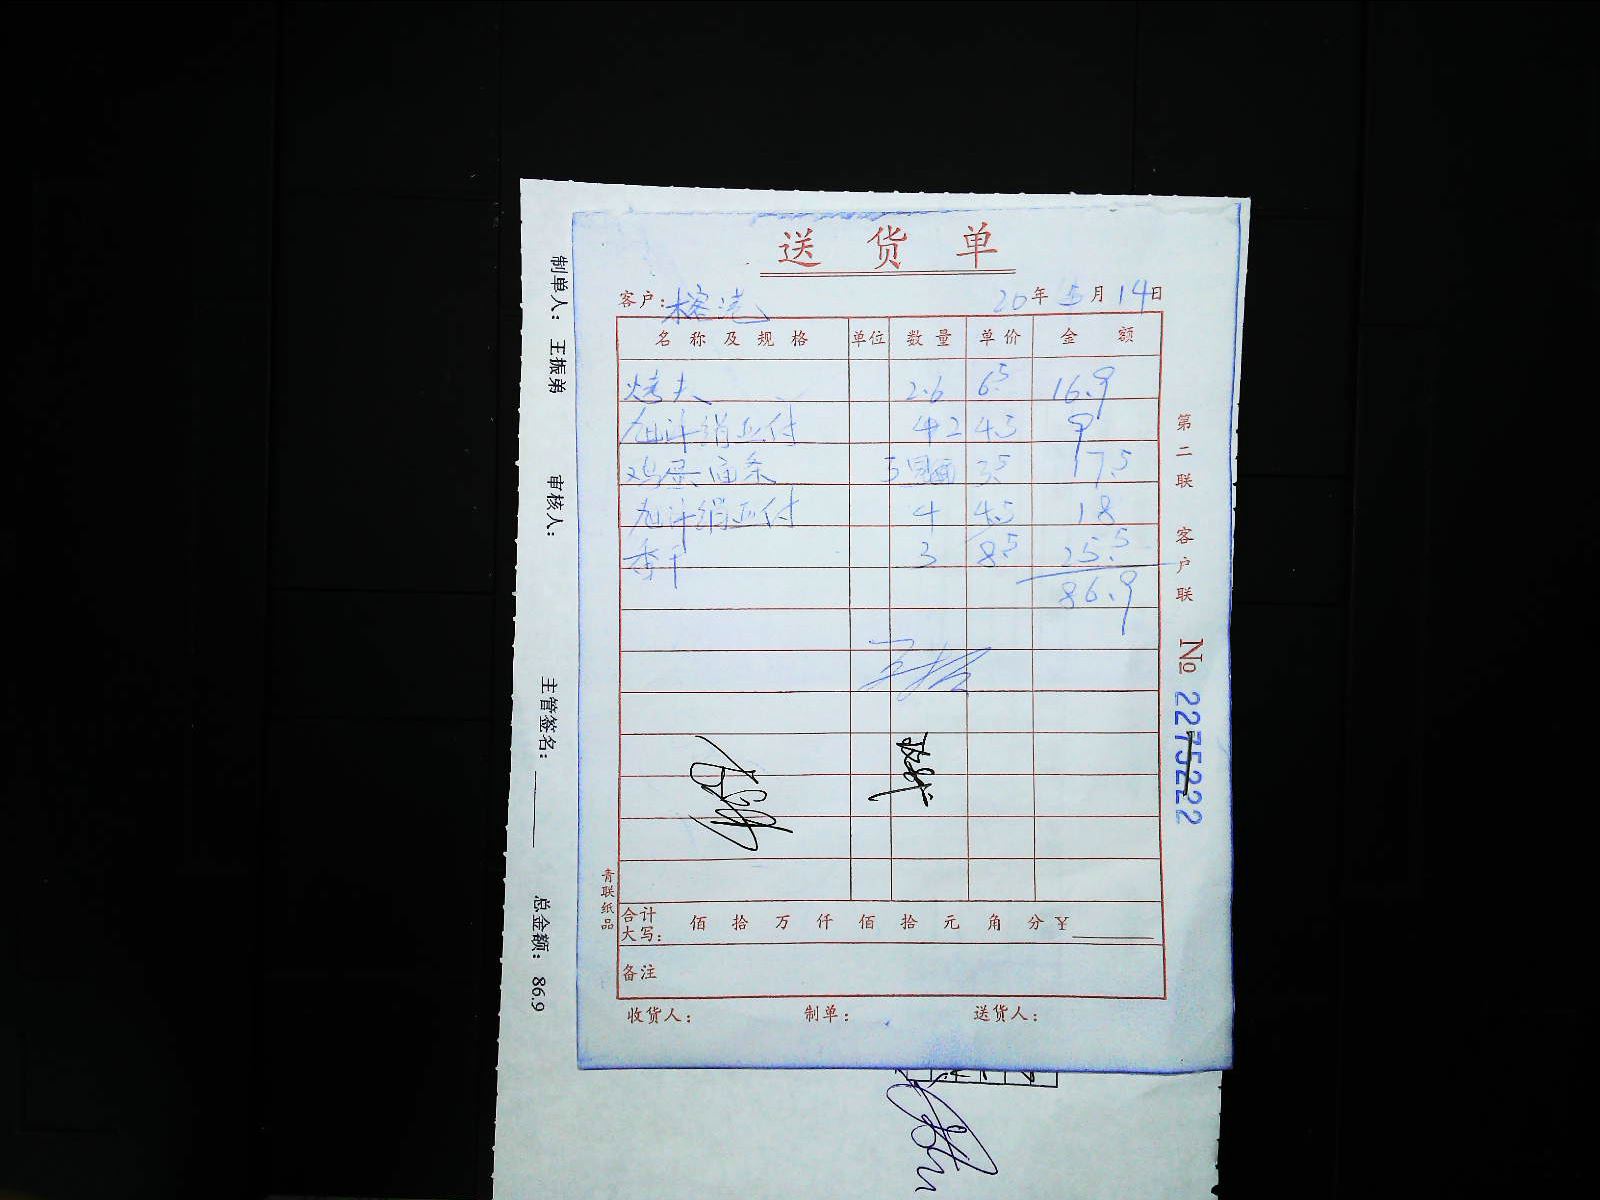 送货单
客户：榕港 20年5月14日
名称及规格 单位 数量 单价 金额
烤夫 2.6 6.5 16.9
2 4.5 9
鸡蛋面条 5 3.5 17.5
4 4.5 18
香干 3 8.5 25.5
86.9
合计大写： 佰 拾 万 仟 佰 拾 元 角 分 ¥
备注
收货人： 制单： 送货人：
青联纸品
第二联 客户联
№ 2275222
制单人： 王振弟 审核人： 主管签名： 总金额： 86.9